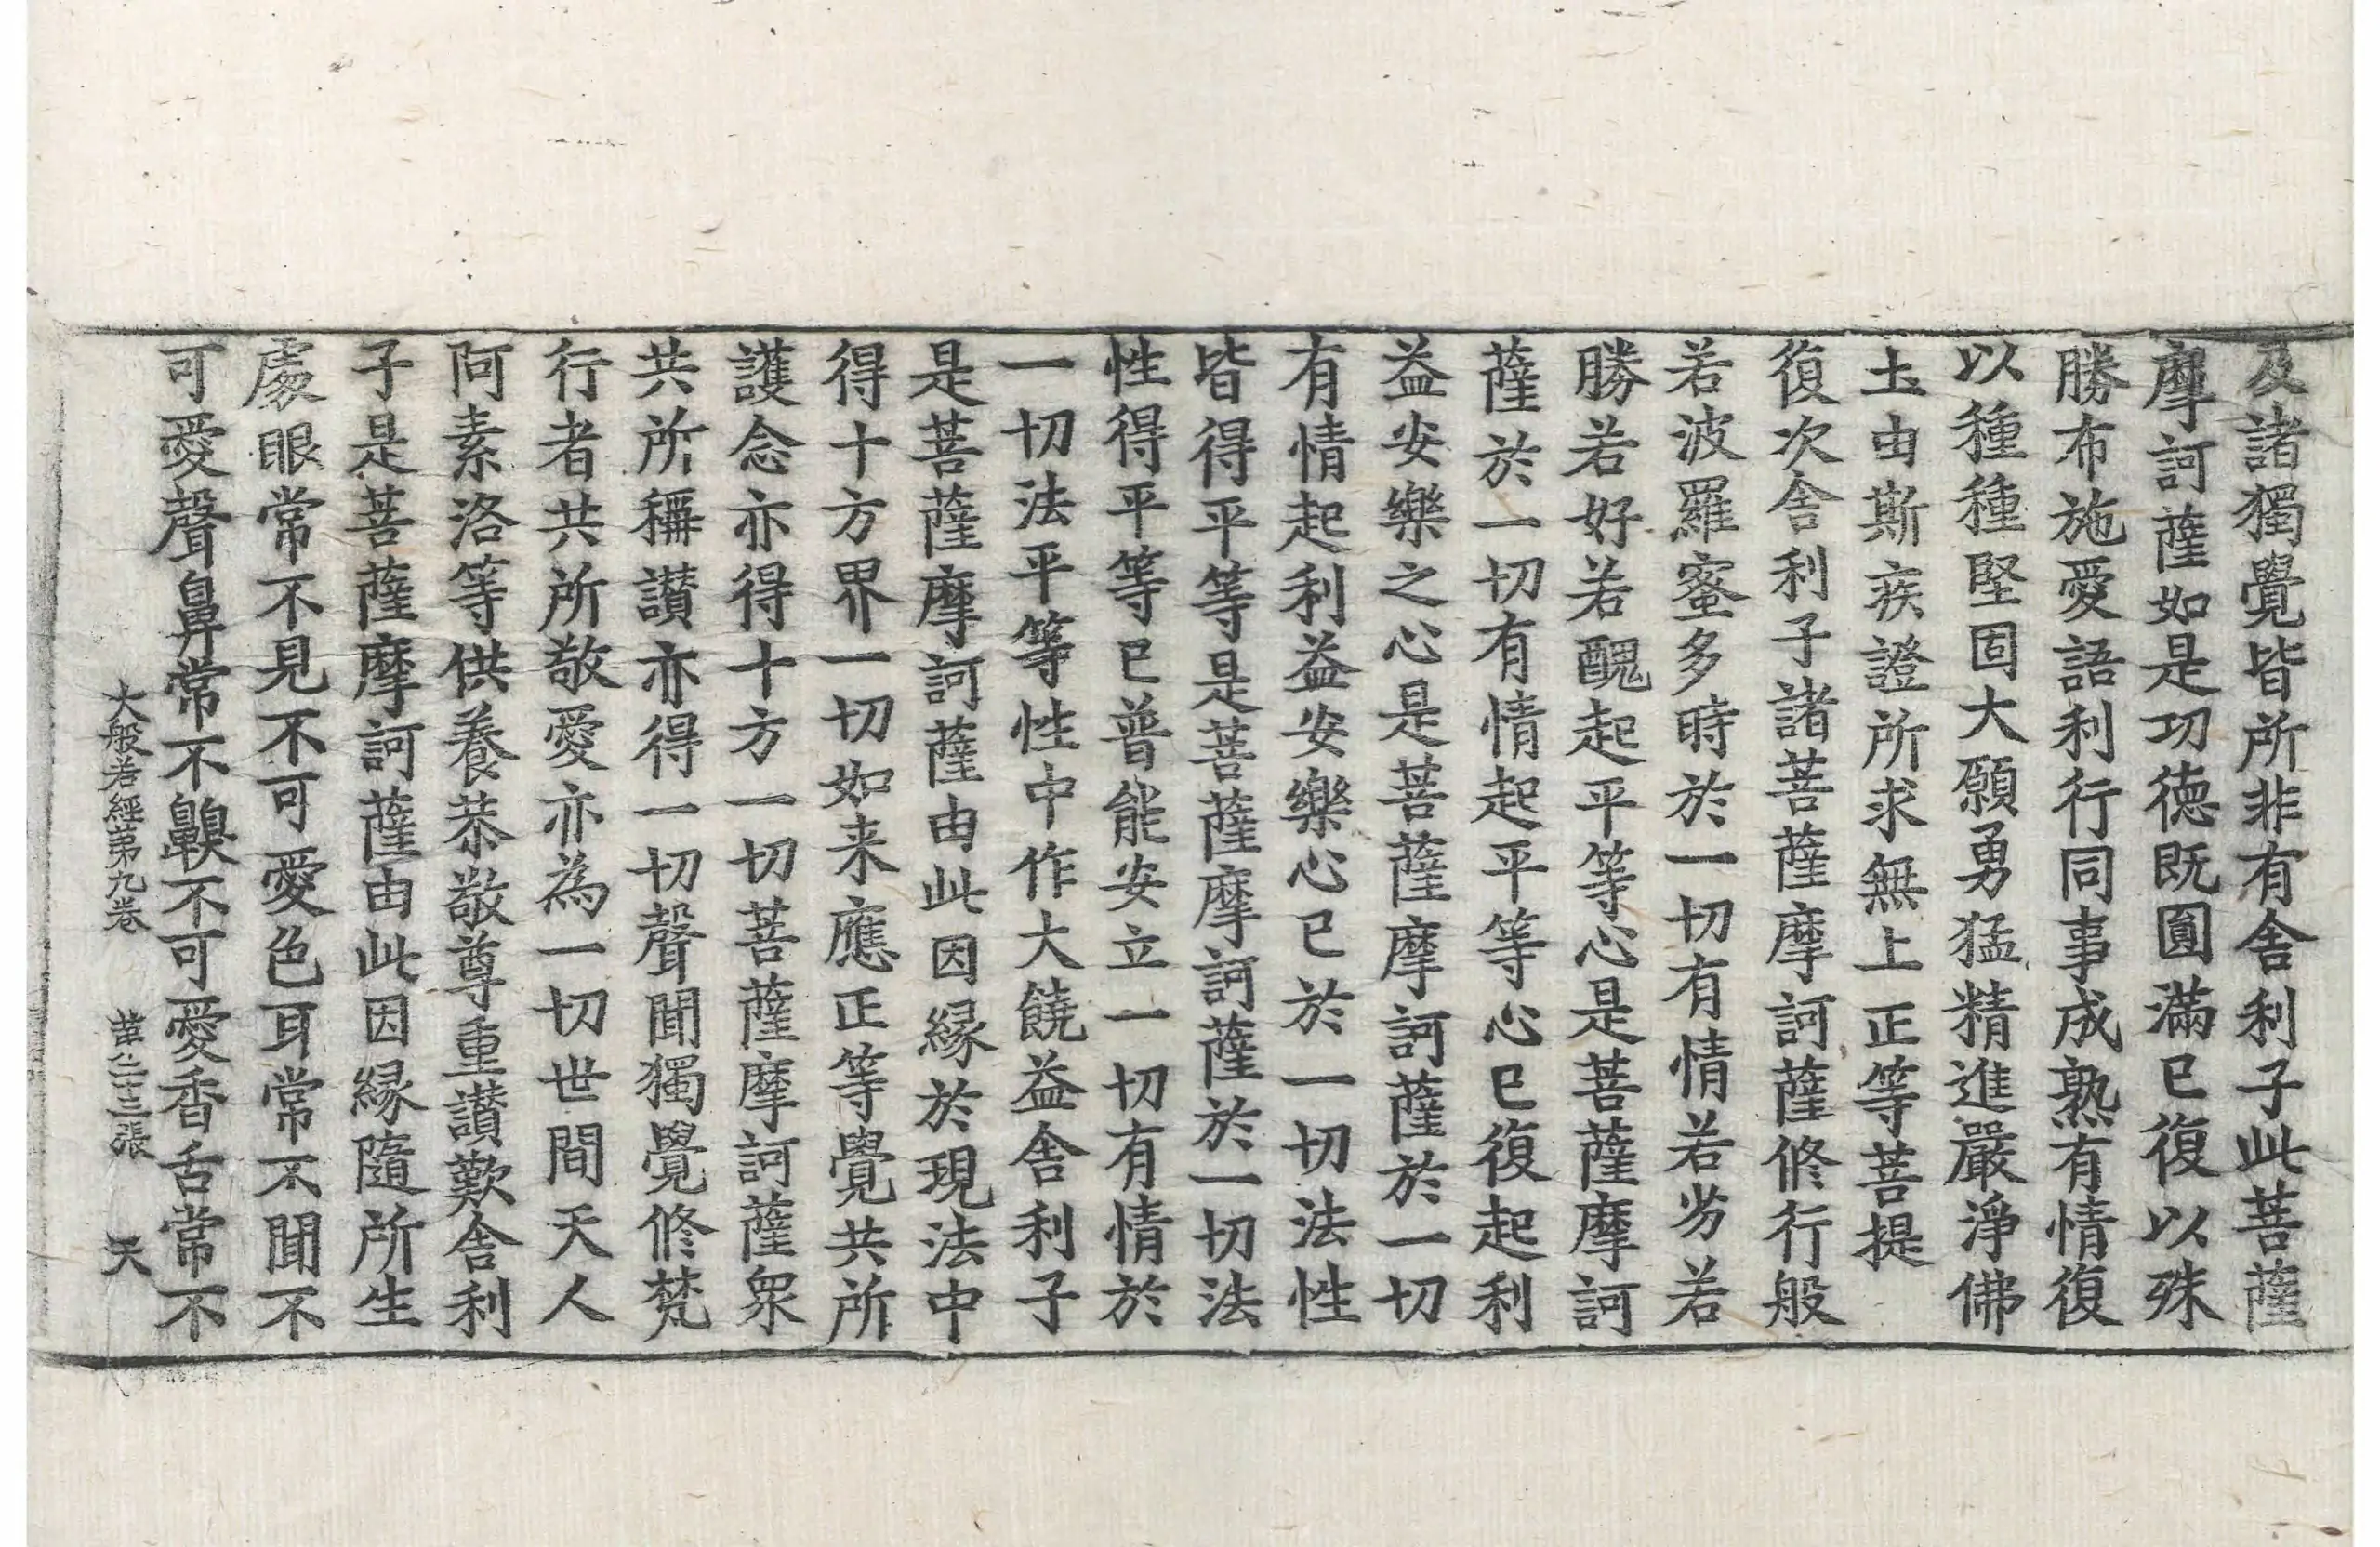 及諸獨覺皆所非有舍利子此菩薩
摩訶薩如是功德既圓滿已復以殊
勝布施愛語利行同事成熟有情復
以種種堅固大願勇猛精進嚴淨佛
土由斯疾證所求無上正等菩提
復次舍利子諸菩薩摩訶薩修行般
若波羅蜜多時於一切有情若劣若
勝若好若醜起平等心是菩薩摩訶
薩於一切有情起平等心已復起利
益安樂之心是菩薩摩訶薩於一切
有情起利益安樂心已於一切法性
皆得平等是菩薩摩訶薩於一切法
性得平等已普能安立一切有情於
一切法平等性中作大饒益舍利子
是菩薩摩訶薩由此因緣於現法中
得十方界一切如来應正等覺共所
護念亦得十方一切菩薩摩訶薩衆
共所稱讃亦得一切聲聞獨覺修梵
行者共所敬愛亦為一切世間天人
阿素洛等供養恭敬尊重讃歎舍利
子是菩薩摩訶薩由此因緣隨所生
處眼常不見不可愛色耳常不聞不
可愛聲鼻常不齅不可愛香舌常不
大般若經第九卷 第二十三張 天